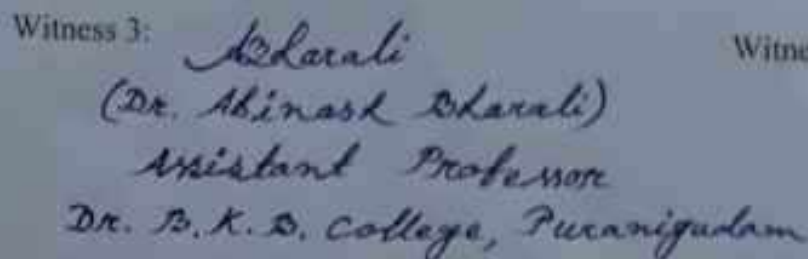 Witness 3:
ABharali
Witne
(Dr. Abinash Bharali)
Assistant Professor
Dr. B.K.B. College, Puranigudam